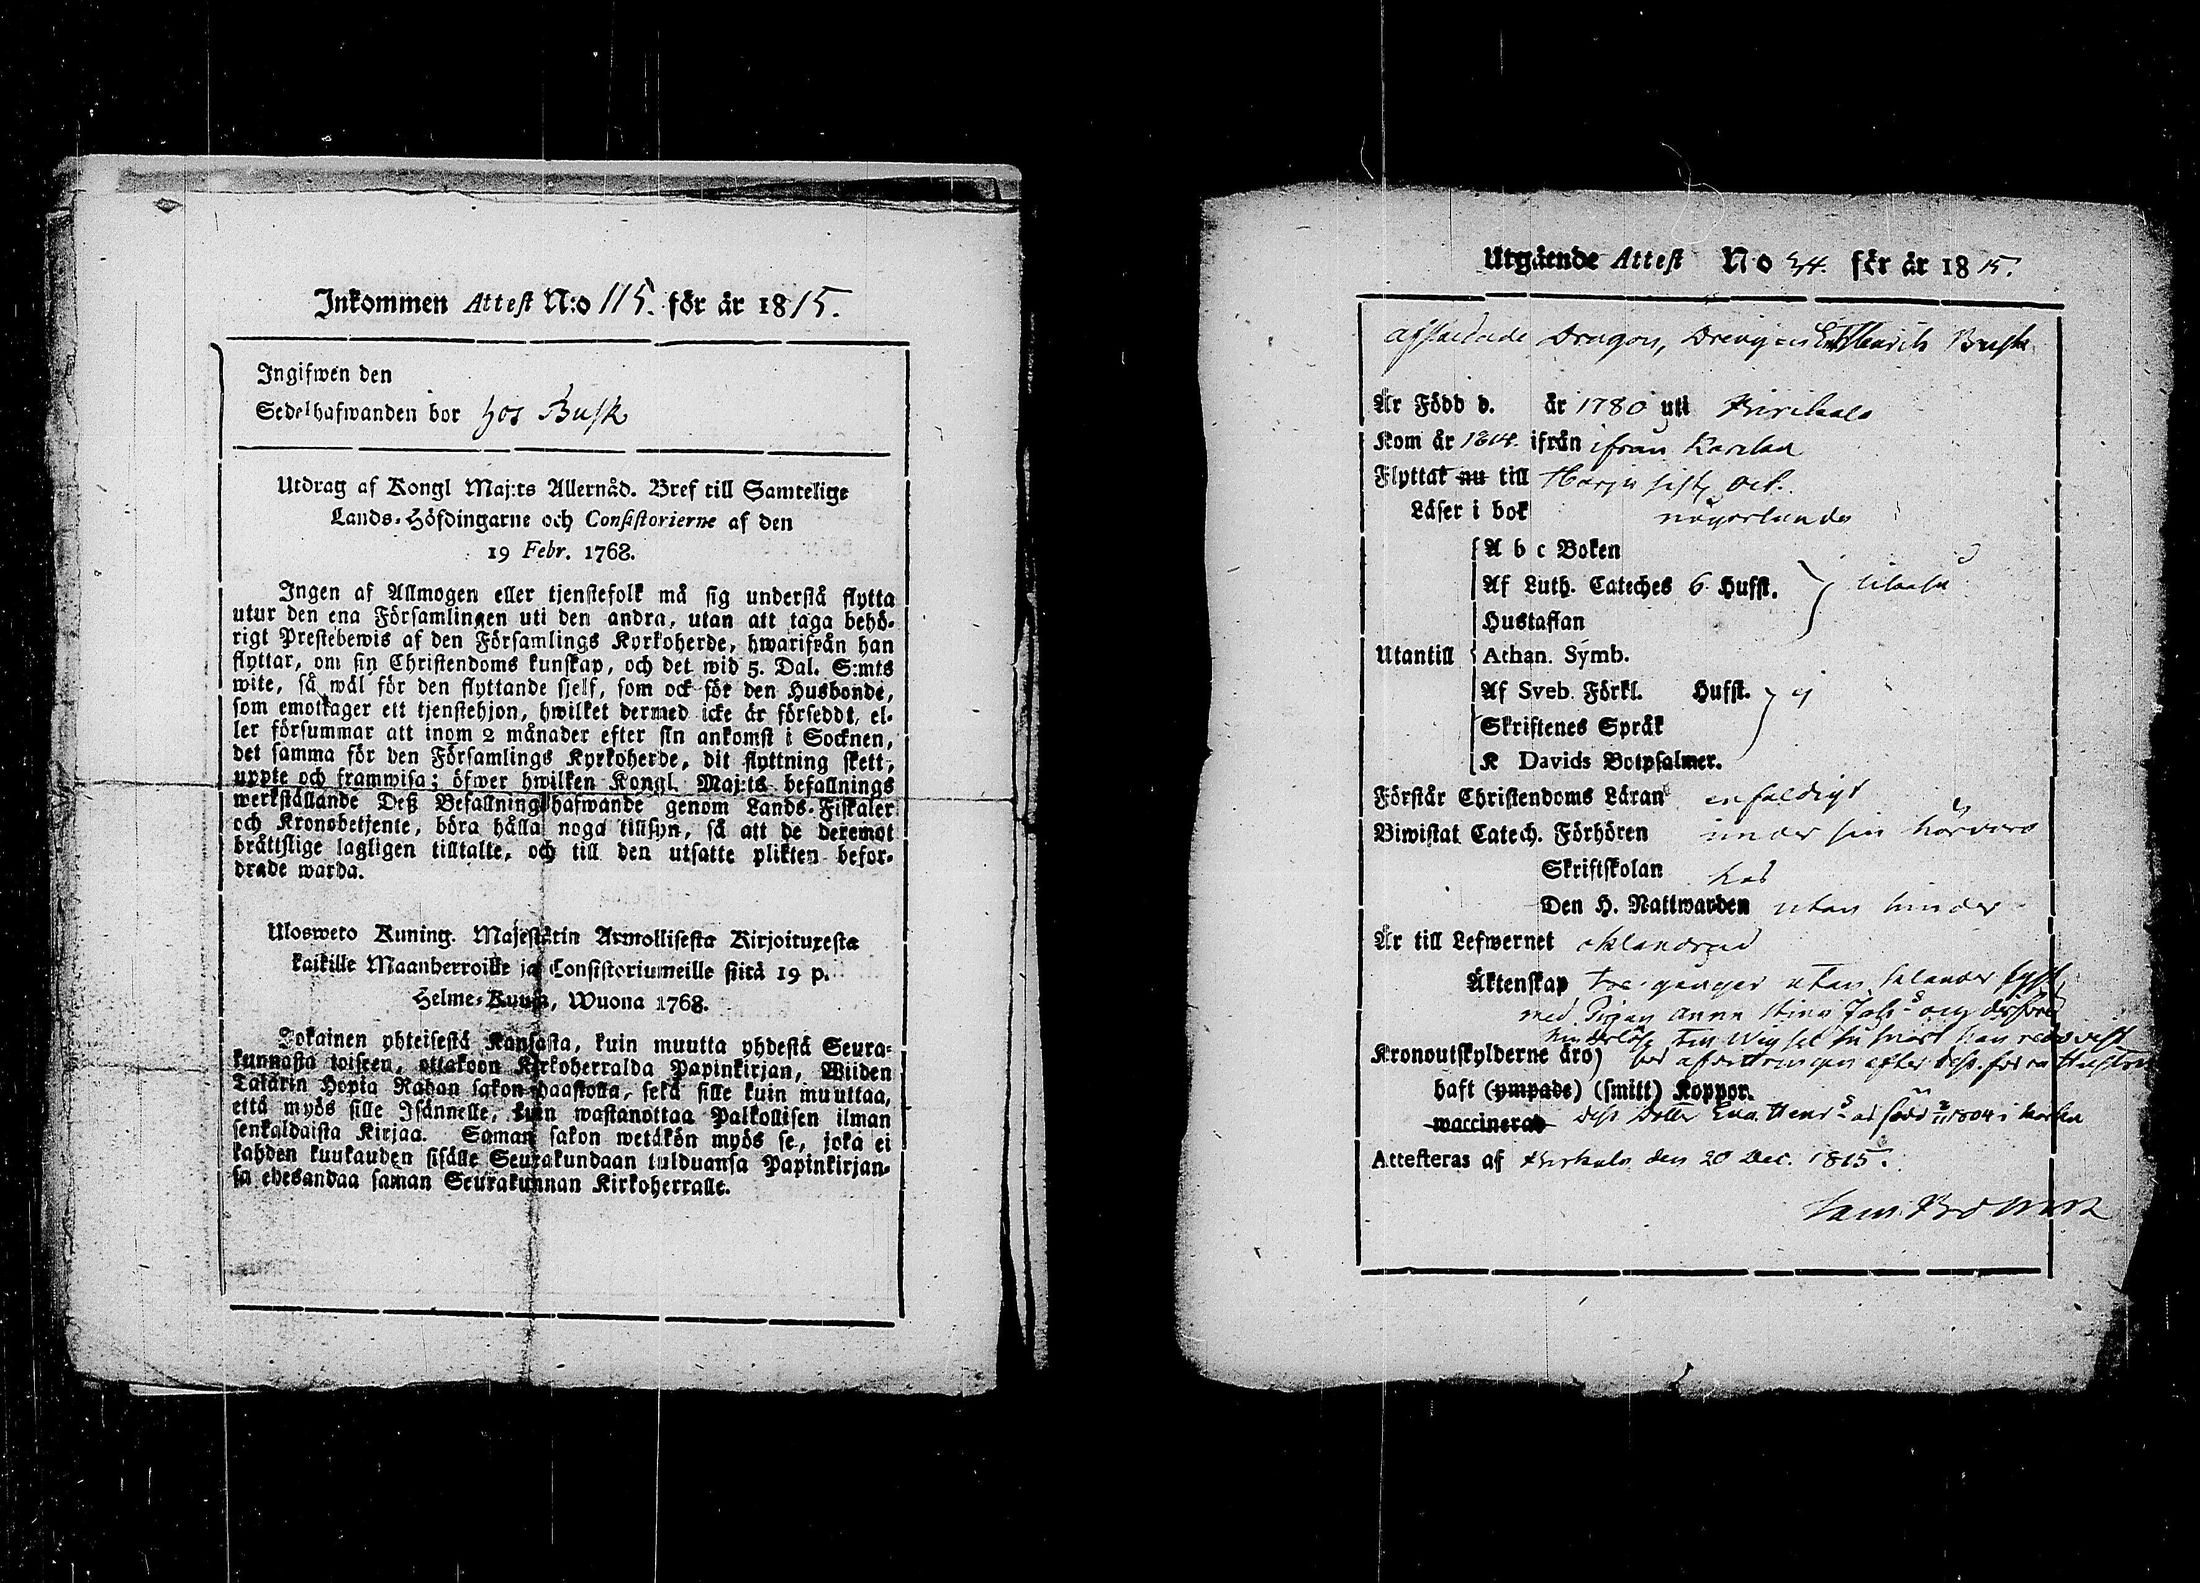 Inkommen Attest N:o 115. för år 1815.
Ingifwen den
Sedelhafwanden bor hos Busk
Utdrag af Kongl Maj:ts Allernåd. Bref till Samtelige
Lands-Höfdingarne och Consistorierne af den
19 Febr. 1768.
Ingen af Allmogen eller tjenstefolk må sig understå flytta
utur den ena Församlingen uti den andra, utan att taga behö-
rigt Prestebewis af den Församlings Kyrkoherde, hwarifrån han
flyttar, om sin Christendoms kunskap, och det wid 5. Dal. S:mts
wite, så wäl för den flyttande sjelf, som ock för den Husbonde,
som emottager ett tjenstehjon, hwilket dermed icke är försedt, el-
ler försummar att inom 2 månader efter sin ankomst i Socknen,
det samma för den Församlings Kyrkoherde, dit flyttning skett,
uppte och framwisa; öfwer hwilken Kongl. Maj:ts befallnings
werkställande Deß Befallningshafwande genom Lands-Fiskaler
och Kronobetjente, böra hålla noga tillsyn, så att de deremot
bråttslige lagligen tilltalte, och till den utsatte plikten befor-
drade warda.
Ulosweto Kuning. Majestätin Armollisesta Kirjoituxesta
kaikille Maanherroille ja Consistoriumeille siitä 19 p.
Helme-Kuusa, Wuona 1768.
Jokainen yhteisestä Kansasta, kuin muutta yhdestä Seura-
kunnasta toiseen, ottakoon Kirkoherralda Papinkirjan, Wiiden
Talarin Hopia Rahan sakon haastolla, sekä sille kuin muuttaa,
että myös sille Isännelle, kuin wastanottaa Palkollisen ilman
senkaldaista Kirjaa. Saman sakon wetäkön myös se, joka ei
kahden kuukauden sisälle Seurakundaan tulduansa Papinkirjan-
sa edesandaa saman Seurakunnan Kirkoherralle.
Utgående Attest No 24. för år 1815.
afskedade Dragon, Drengen Henrich Busk
Är Född d. år 1780 uti Birckala
Kom år 1804. ifrån ifrån
Flyttat nu till Harju sistl. Oct.
Läser i bok någorlunda
A b c Boken
Af Luth. Cateches 6 Hufst.
Hustaflan
Utantill Athan. Symb.
Af Sveb. Förkl. Hufst. ej
Skriftenes Språk
K Davids Botpsalmer.
Förstår Christendoms Läran enfaldigt
Biwistat Catech. Förhören under sin härvaro
Skriftskolan
Den H. Nattwarden utan hinder
Är till Lefwernet oklandrad
Äktenskap tre gånger utan
med Pigan Anna Stina
Kronoutskylderne äro)
haft (ympade) (smitt) Koppor.
waccinerad Dess Dotter Eva född 1804 i
Attesteras af Birkala den 20 Dec. 1815.